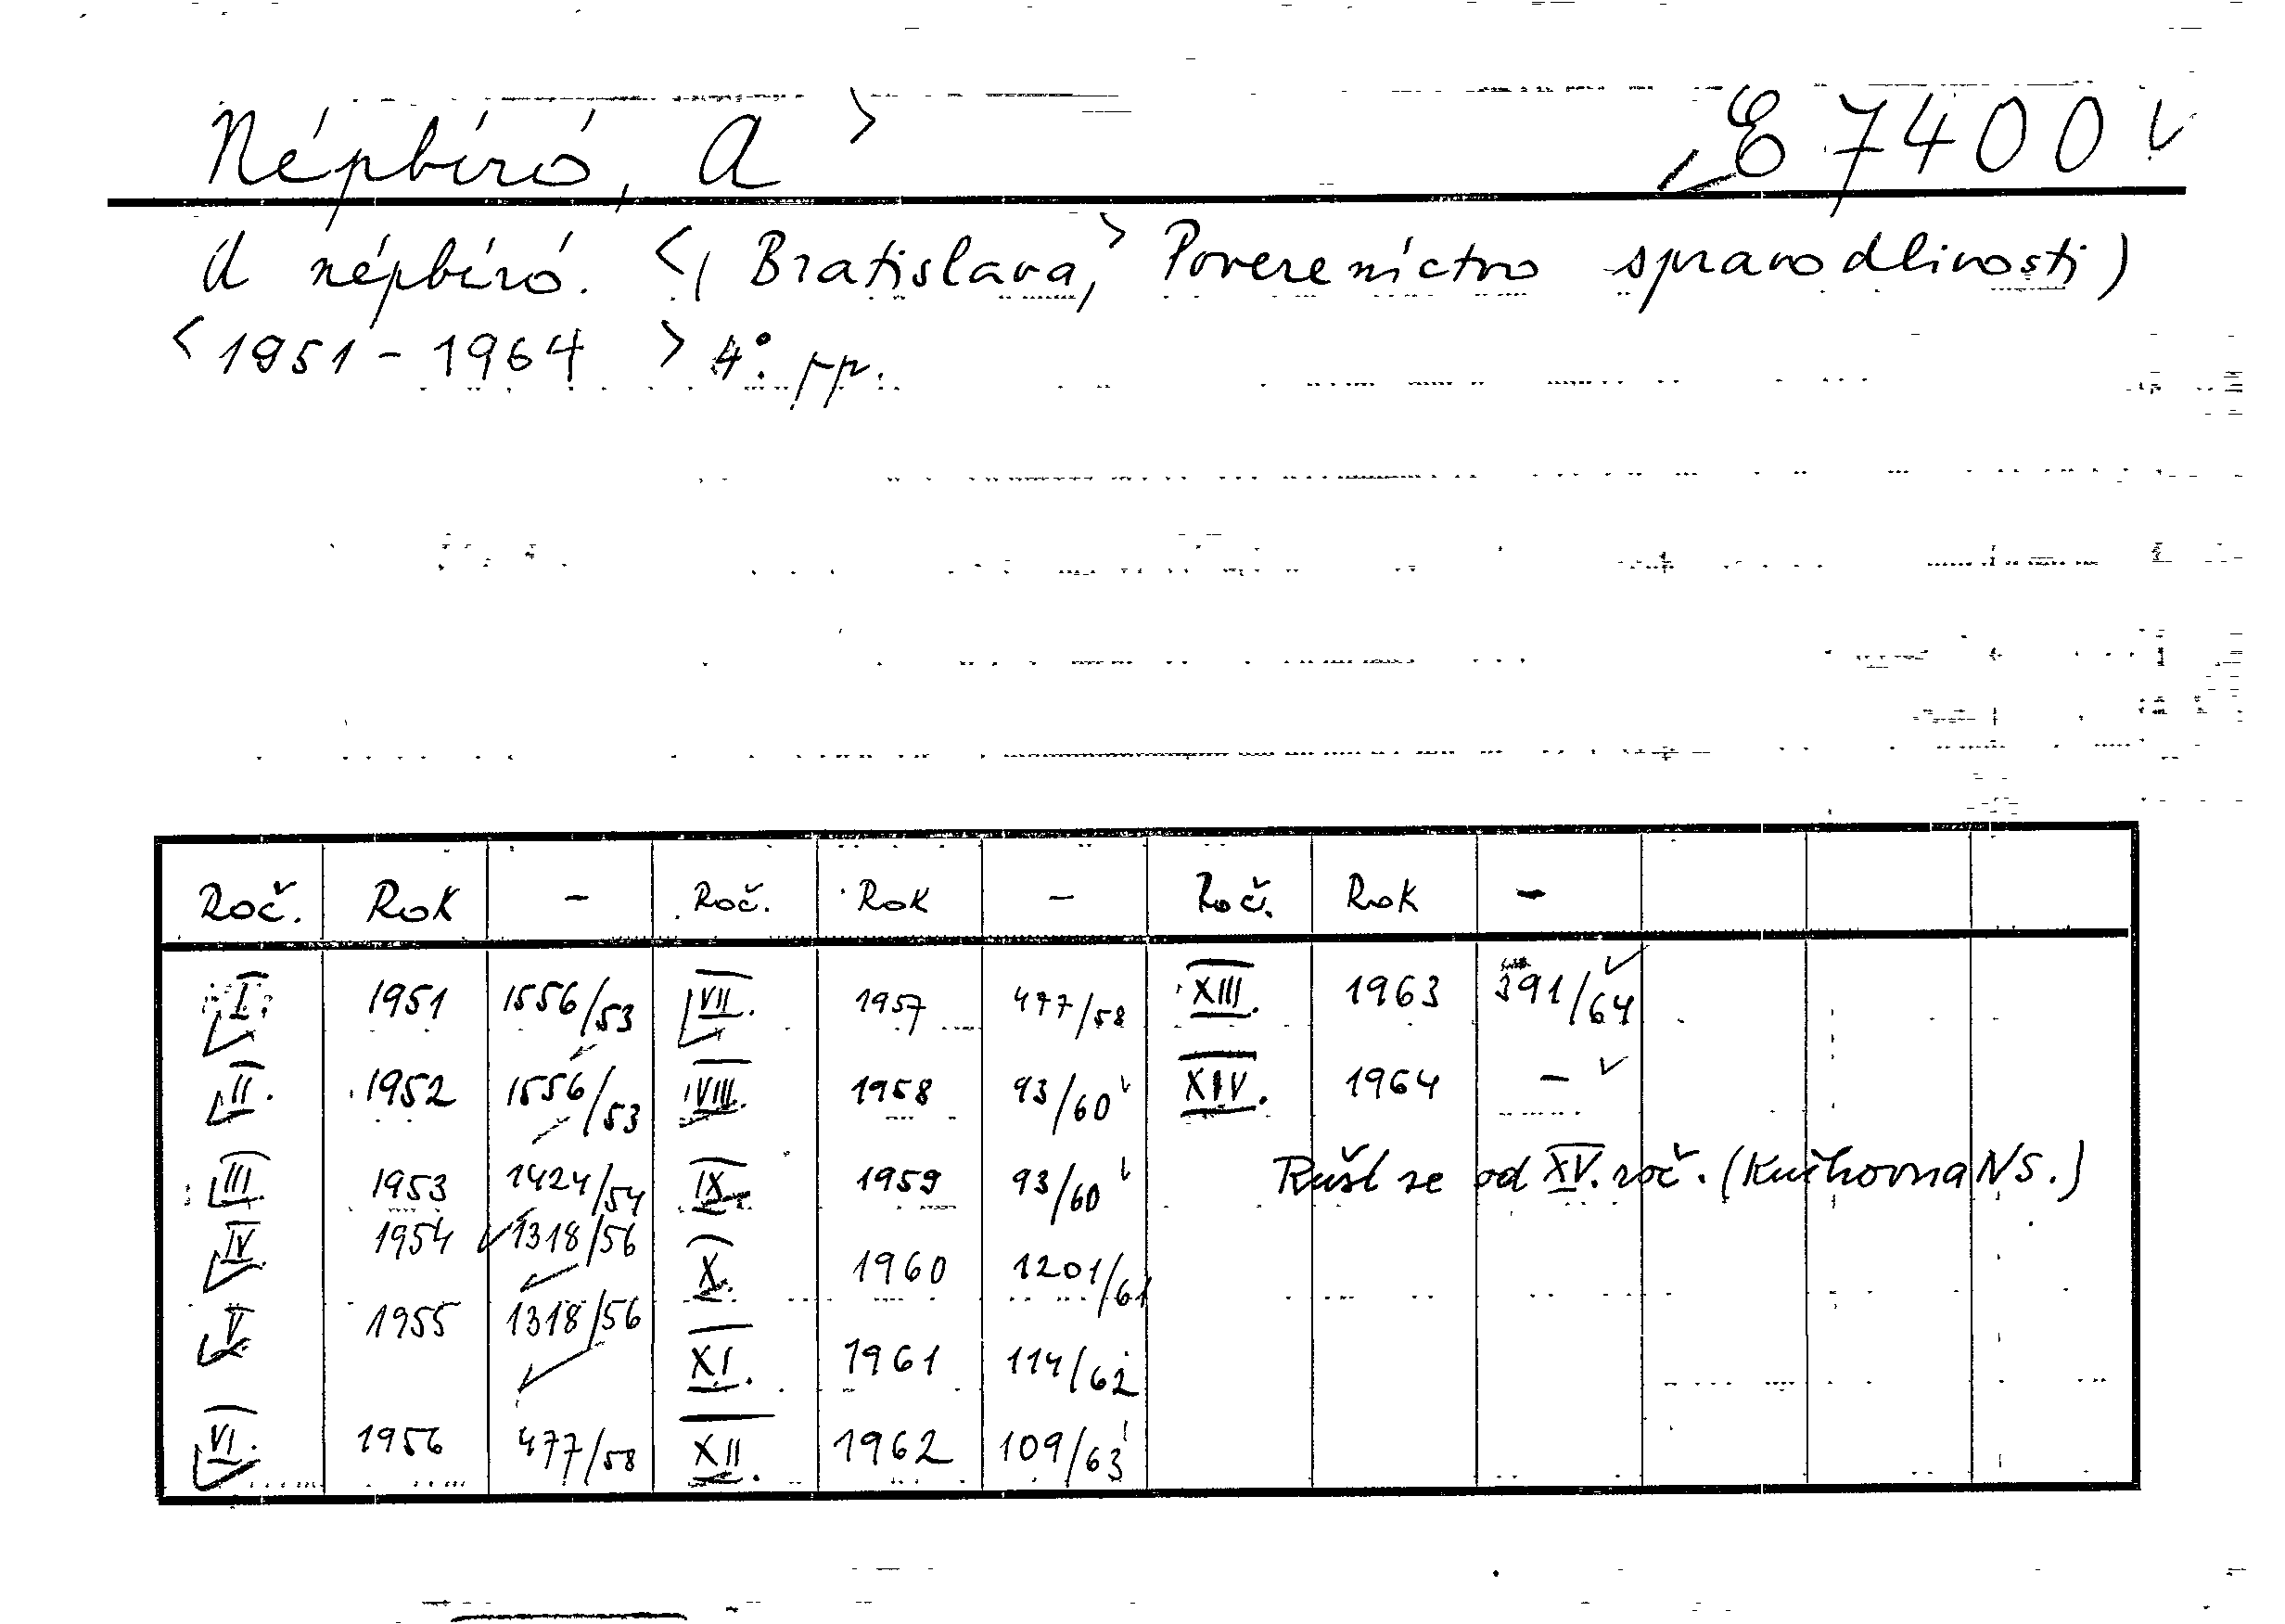 Népbíró, A > E 7400
A népbíró. <( Bratislava, > Povereníctvo spravodlivosti)
<1951-1964 > 4°. pp.
Roč. Rok - Roč. Rok - Roč. Rok -
I. 1951 1556/53 VII. 1957 477/58 XIII. 1963 391/64
II. 1952 1556/53 VIII. 1958 93/60 XIV. 1964 -
III. 1953 1424/54 IX. 1959 93/60 Ruší se od XV. roč. (Knihovna NS.)
IV 1954 1318/56 X. 1960 1201/61
V. 1955 1318/56 XI. 1961 114/62
VI. 1956 477/58 XII. 1962 109/63